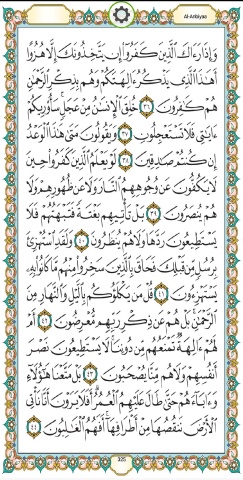 Al-Anbiyaa
وَإِذَا رَءَاكَ ٱلَّذِينَ كَفَرُوٓا۟ إِن يَتَّخِذُونَكَ إِلَّا هُزُوًا
أَهَٰذَا ٱلَّذِى يَذْكُرُ ءَالِهَتَكُمْ وَهُم بِذِكْرِ ٱلرَّحْمَٰنِ
هُمْ كَٰفِرُونَ ٣٦ خُلِقَ ٱلْإِنسَٰنُ مِنْ عَجَلٍ سَأُو۟رِيكُمْ
ءَايَٰتِى فَلَا تَسْتَعْجِلُونِ ٣٧ وَيَقُولُونَ مَتَىٰ هَٰذَا ٱلْوَعْدُ
إِن كُنتُمْ صَٰدِقِينَ ٣٨ لَوْ يَعْلَمُ ٱلَّذِينَ كَفَرُوا۟ حِينَ
لَا يَكُفُّونَ عَن وُجُوهِهِمُ ٱلنَّارَ وَلَا عَن ظُهُورِهِمْ وَلَا
هُمْ يُنصَرُونَ ٣٩ بَلْ تَأْتِيهِم بَغْتَةً فَتَبْهَتُهُمْ فَلَا
يَسْتَطِيعُونَ رَدَّهَا وَلَا هُمْ يُنظَرُونَ ٤٠ وَلَقَدِ ٱسْتُهْزِئَ
بِرُسُلٍ مِّن قَبْلِكَ فَحَاقَ بِٱلَّذِينَ سَخِرُوا۟ مِنْهُم مَّا كَانُوا۟ بِهِۦ
يَسْتَهْزِءُونَ ٤١ قُلْ مَن يَكْلَؤُكُم بِٱلَّيْلِ وَٱلنَّهَارِ مِنَ
ٱلرَّحْمَٰنِ بَلْ هُمْ عَن ذِكْرِ رَبِّهِم مُّعْرِضُونَ ٤٢ أَمْ
لَهُمْ ءَالِهَةٌ تَمْنَعُهُم مِّن دُونِنَا لَا يَسْتَطِيعُونَ نَصْرَ
أَنفُسِهِمْ وَلَا هُم مِّنَّا يُصْحَبُونَ ٤٣ بَلْ مَتَّعْنَا هَٰٓؤُلَآءِ
وَءَابَآءَهُمْ حَتَّىٰ طَالَ عَلَيْهِمُ ٱلْعُمُرُ أَفَلَا يَرَوْنَ أَنَّا نَأْتِى
ٱلْأَرْضَ نَنقُصُهَا مِنْ أَطْرَافِهَآ أَفَهُمُ ٱلْغَٰلِبُونَ ٤٤
325